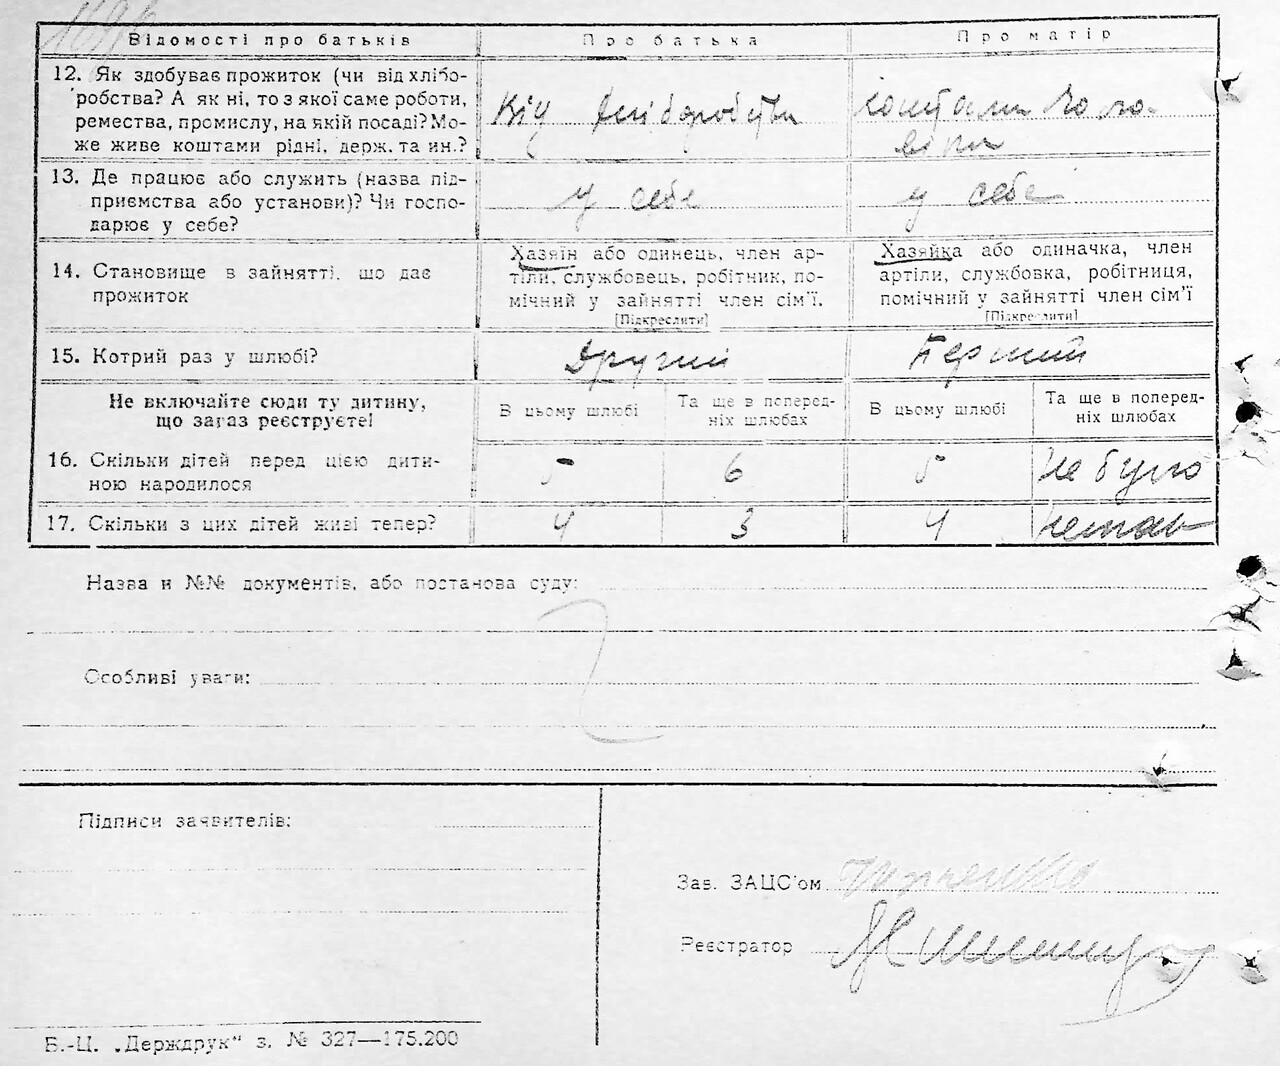 169
Відомості про батьків
Про батька
Про матір
12. Як здобуває прожиток (чи від хлібо-
робства? А як ні, то з якої саме роботи,
ремества, промислу, на якій посаді? Мо-
же живе коштами рідні, держ. та ин.?
Від хліборобства
коштами чоло-
віка
13. Де працює або служить (назва під-
приємства або установи)? Чи госпо-
дарює у себе?
у себе
у себе
14. Становище в зайнятті, що дає
прожиток
Хазяїн або одинець, член ар-
тіли, службовець, робітник, по-
мічний у зайнятті член сім'ї.
[Підкреслити]
Хазяйка або одиначка, член
артіли, службовка, робітниця,
помічний у зайнятті член сім'ї
[Підкреслити]
15. Котрий раз у шлюбі?
Другий
Перший
Не включайте сюди ту дитину,
що зараз реєструєте!
В цьому шлюбі
Та ще в поперед-
ніх шлюбах
В цьому шлюбі
Та ще в поперед-
ніх шлюбах
16. Скільки дітей перед цією дити-
ною народилося
5
6
5
не було
17. Скільки з цих дітей живі тепер?
4
3
4
немає
Назва и №№ документів, або постанова суду:
Особливі уваги:
Підписи заявителів:
Зав. ЗАЦС'ом
Реєстратор
Б.-Ц. „Держдрук" з. № 327—175.200